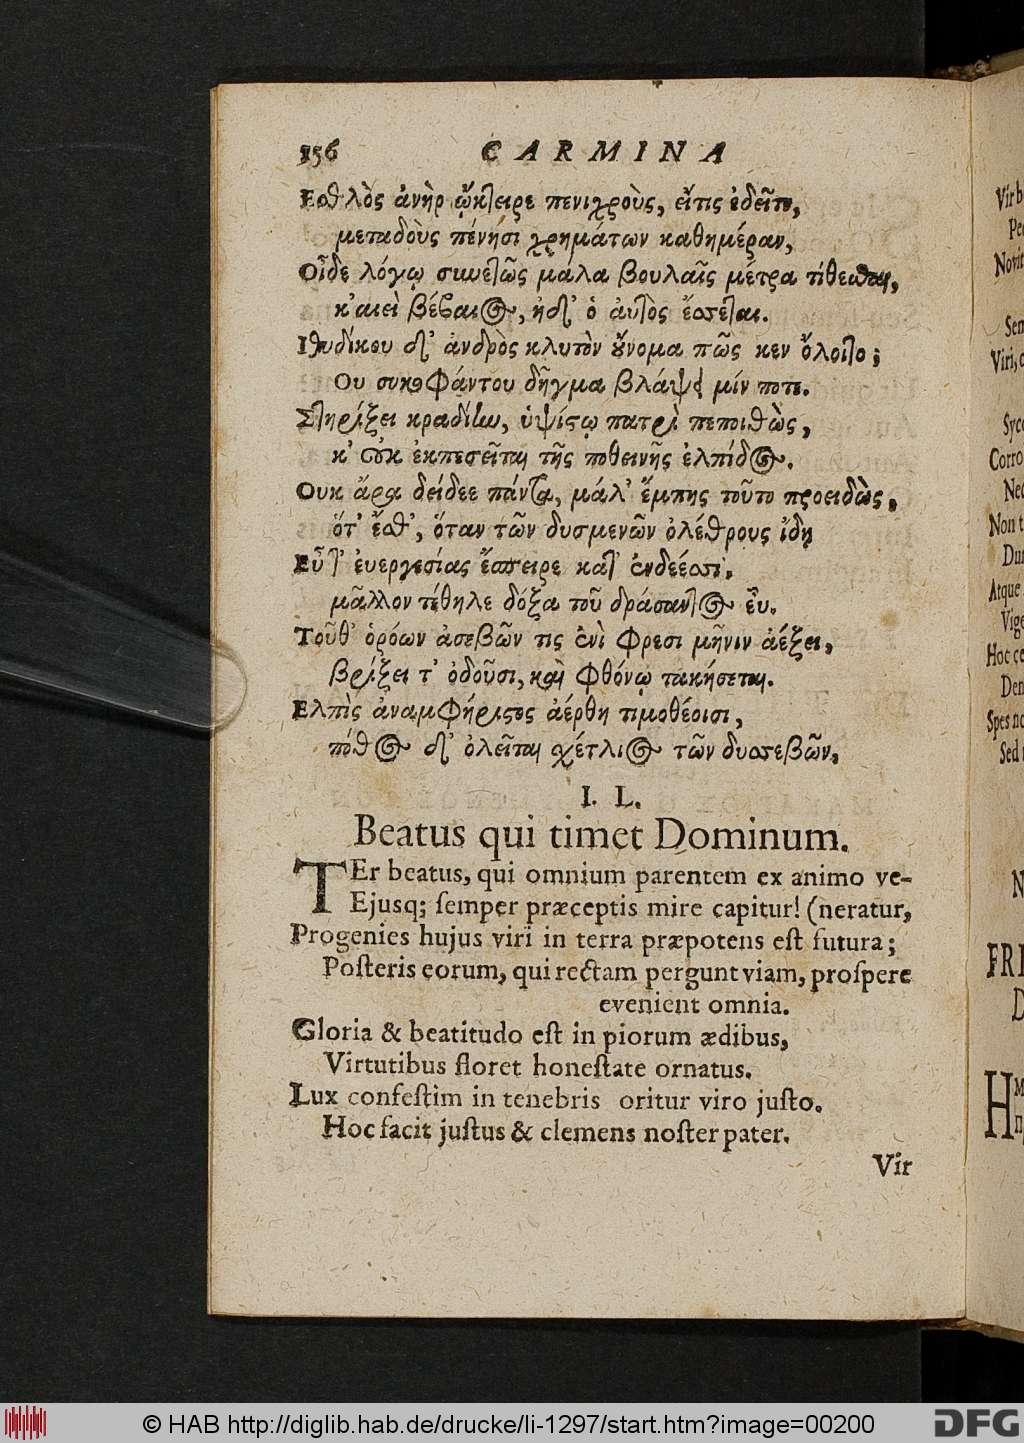 156 CARMINA
Εσθλὸς ἀνὴρ ᾤκτειρε πενιχροὺς, εἴτις ἐδεῖτο,
μεταδοὺς πένησι χρημάτων καθημέραν,
Οἶδε λόγῳ συνετῶς μάλα βουλαῖς μέτρα τίθεσθαι,
κ' αιεὶ βέβαιος, ἠδ' ὁ αὐτὸς ἔσσεται.
Ιθυδίκου δ' ἀνδρὸς κλυτὸν ὄνομα πῶς κεν ὄλοιτο;
Ου συκοφάντου δῆγμα βλάψει μίν ποτε.
Στηρίξει κραδίην, ὑψίστῳ πατρὶ πεποιθὼς,
κ' οὐκ ἐκπεσεῖται τῆς ποθεινῆς ἐλπίδος.
Ουκ ἄρα δείδεε πάντα, μάλ' ἔμπης τοῦτο προειδὼς,
ὅτ' ἔσθ', ὅταν τῶν δυσμενῶν ὀλέθρους ἴδῃ
Εὖτ' ἐυεργεσίας ἔσπειρε κατ' ἐνδεέεσσι,
μᾶλλον τέθηλε δόξα τοῦ δράσαντος εὖ.
Τοῦθ' ὁρόων ἀσεβῶν τις ἐνὶ φρεσι μῆνιν ἀέξει,
βρίξει τ' ὀδοῦσι, καὶ φθόνῳ τακήσεται.
Ελπὶς ἀναμφήριστος ἀέρθη τιμοθέοισι,
πόθος δ' ὀλεῖται σχέτλιος τῶν δυσσεβῶν.
I. L.
Beatus qui timet Dominum.
TEr beatus, qui omnium parentem ex animo ve-
Ejusq; semper præceptis mire capitur! (neratur,
Progenies hujus viri in terra præpotens est futura;
Posteris eorum, qui rectam pergunt viam, prospere
evenient omnia.
Gloria & beatitudo est in piorum ædibus,
Virtutibus floret honestate ornatus.
Lux confestim in tenebris oritur viro justo.
Hoc facit justus & clemens noster pater.
Vir
Vir b
Novit
Sem
Viri,
Syco
Corro
Nec
Non t
Dum
Atque
Vige
Hoc ce
Den
Spes no
Sed
N
FRI
D
H
© HAB http://diglib.hab.de/drucke/li-1297/start.htm?image=00200
DFG